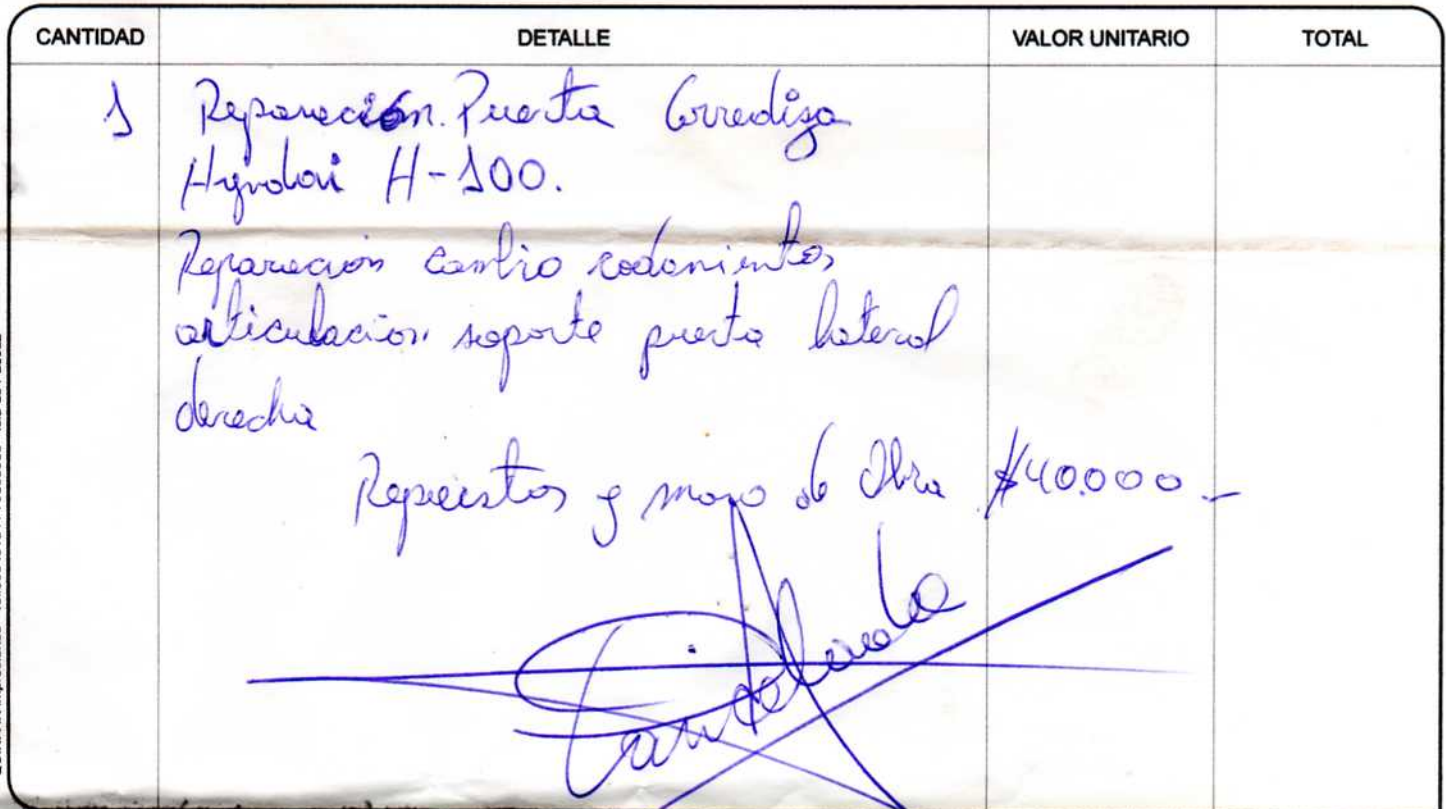 CANTIDAD DETALLE VALOR UNITARIO TOTAL
1 Reparación. Puerta Corrediza
Hyndai H-100.
Reparacion cambio rodamientos
articulacion soporte puerta lateral
derecha
Repuestos y mano de Obra $40.000.-